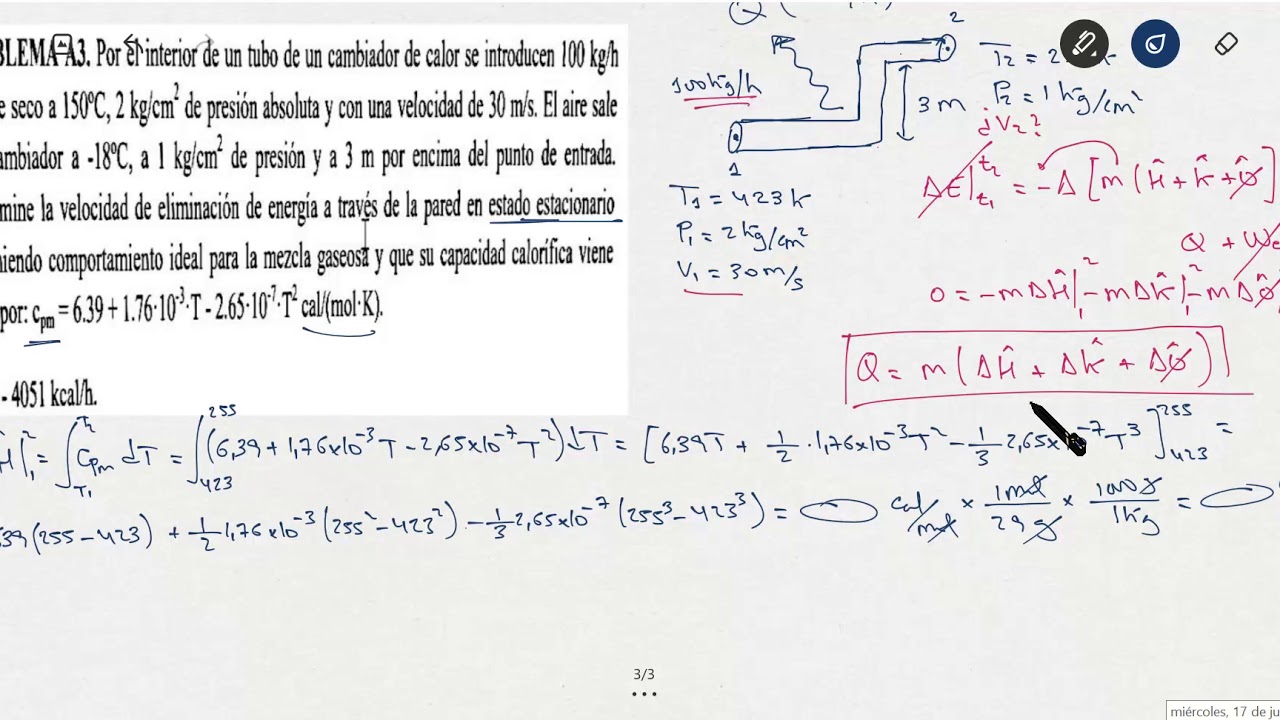 BLEMA A3. Por el interior de un tubo de un cambiador de calor se introducen 100 kg/h
e seco a 150ºC, 2 kg/cm² de presión absoluta y con una velocidad de 30 m/s. El aire sale
ambiador a -18ºC, a 1 kg/cm² de presión y a 3 m por encima del punto de entrada.
mine la velocidad de eliminación de energía a través de la pared en estado estacionario
niendo comportamiento ideal para la mezcla gaseosa y que su capacidad calorífica viene
por: cpm = 6.39 + 1.76·10⁻³·T - 2.65·10⁻⁷·T² cal/(mol·K).
- 4051 kcal/h.
Q (
2
100 kg/h
3 m
1
T₁ = 423 K
P₁ = 2 kg/cm²
V₁ = 30 m/s
T₂ = 2
K
P₂ = 1 kg/cm²
¿V₂?
ΔE|t₁ t₂ = -Δ[m(Ĥ + K̂ + Φ̂)]
Q + We
0 = -mΔĤ|₁² - mΔK̂|₁² - mΔΦ̂
Q = m(ΔĤ + ΔK̂ + ΔΦ̂)
Ĥ|₁² = ∫T₁ T₂ Cpm dT = ∫423 255 (6,39 + 1,76x10⁻³T - 2,65x10⁻⁷T²)dT = [6,39T + 1/2 · 1,76x10⁻³T² - 1/3 2,65x10⁻⁷T³]423 255 =
39(255 - 423) + 1/2 1,76x10⁻³(255² - 423²) - 1/3 2,65x10⁻⁷(255³ - 423³) = cal/mol x 1mol/29g x 1000g/1kg =
3/3
miércoles, 17 de ju